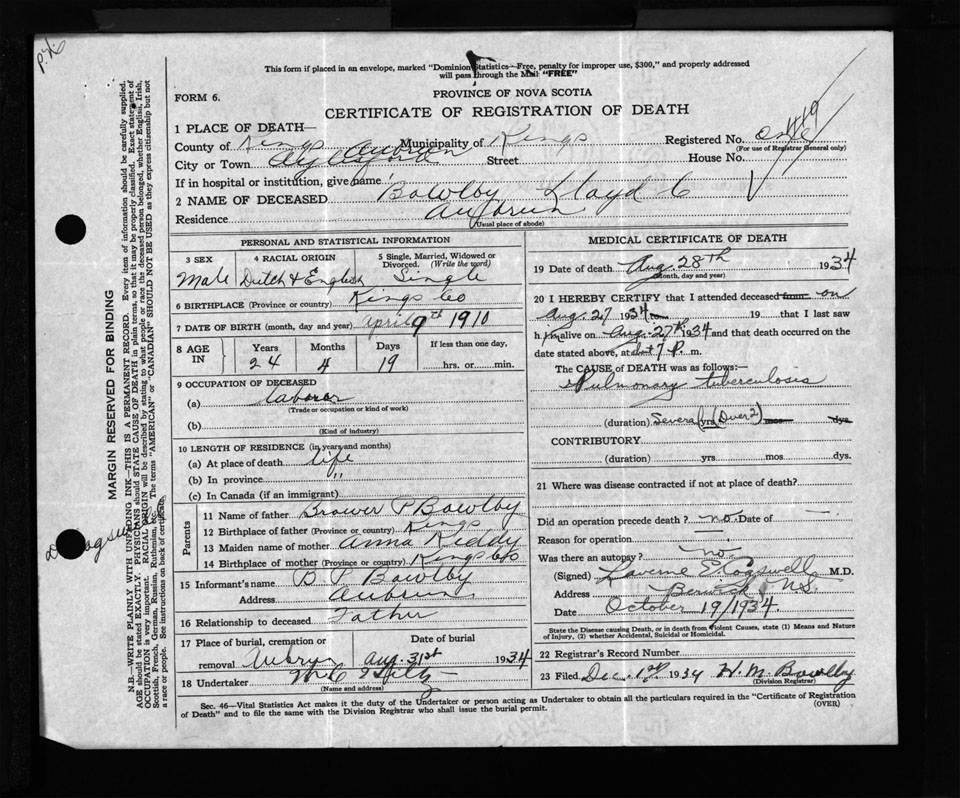 P.X.
This form if placed in an envelope, marked "Dominion Statistics—Free, penalty for improper use, $300," and properly addressed
will pass through the Mail "FREE"
PROVINCE OF NOVA SCOTIA
FORM 6.
CERTIFICATE OF REGISTRATION OF DEATH
1 PLACE OF DEATH—
County of Kings Auburn Municipality of Kings Registered No.
(For use of Registrar General only)
City or Town Aylesford Street House No.
If in hospital or institution, give name
2 NAME OF DECEASED Bowlby Lloyd C
Residence Auburn
(Usual place of abode)
PERSONAL AND STATISTICAL INFORMATION
3 SEX 4 RACIAL ORIGIN 5 Single, Married, Widowed or
Divorced. (Write the word)
Male Dutch & English Single
6 BIRTHPLACE (Province or country) Kings Co
7 DATE OF BIRTH (month, day and year) April 9th 1910
8 AGE IN Years Months Days If less than one day,
24 4 19 hrs. or min.
9 OCCUPATION OF DECEASED
(a) laborer
(Trade or occupation or kind of work)
(b)
(Kind of industry)
10 LENGTH OF RESIDENCE (in years and months)
(a) At place of death life
(b) In province "
(c) In Canada (if an immigrant)
Parents
11 Name of father Brower P Bowlby
12 Birthplace of father (Province or country) Kings
13 Maiden name of mother Anna Reddy
14 Birthplace of mother (Province or country) Kings Co
15 Informant's name B P Bowlby
Address Auburn
16 Relationship to deceased Father
17 Place of burial, cremation or Date of burial
removal Auburn Aug. 31st 1934
18 Undertaker
(Name and address)
MEDICAL CERTIFICATE OF DEATH
19 Date of death Aug. 28th 1934
(Month, day and year)
20 I HEREBY CERTIFY that I attended deceased from on
Aug. 27 1934 to 19 that I last saw
him alive on Aug. 27th 1934 and that death occurred on the
date stated above, at 7 P. m.
The CAUSE OF DEATH was as follows:—
Pulmonary tuberculosis
(duration) Several yrs (Over 2) mos dys.
CONTRIBUTORY
(duration) yrs. mos. dys.
21 Where was disease contracted if not at place of death?
Did an operation precede death? no. Date of —
Reason for operation
Was there an autopsy? no.
(Signed) Laverne E. Cogswell M.D.
Address Berwick, N.S.
Date October 19/1934.
State the Disease causing Death, or in death from Violent Causes, state (1) Means and Nature
of Injury, (2) whether Accidental, Suicidal or Homicidal.
22 Registrar's Record Number
23 Filed Dec. 1st 1934 H. M. Bowlby
(Division Registrar)
Sec. 46—Vital Statistics Act makes it the duty of the Undertaker or person acting as Undertaker to obtain all the particulars required in the "Certificate of Registration
of Death" and to file the same with the Division Registrar who shall issue the burial permit. (OVER)
MARGIN RESERVED FOR BINDING
N.B.—WRITE PLAINLY WITH UNFADING INK—THIS IS A PERMANENT RECORD. Every item of information should be carefully supplied.
AGE should be stated EXACTLY. PHYSICIANS should STATE CAUSE OF DEATH in plain terms, so that it may be properly classified. Exact statement of
OCCUPATION is very important. RACIAL ORIGIN will be described by stating to what people or race the deceased person belonged, whether English, Irish,
Scottish, French, German, Russian, Ruthenian, etc. The terms "AMERICAN" or "CANADIAN" SHOULD NOT BE USED as they express citizenship but not
a race or people. See instructions on back of certificate.